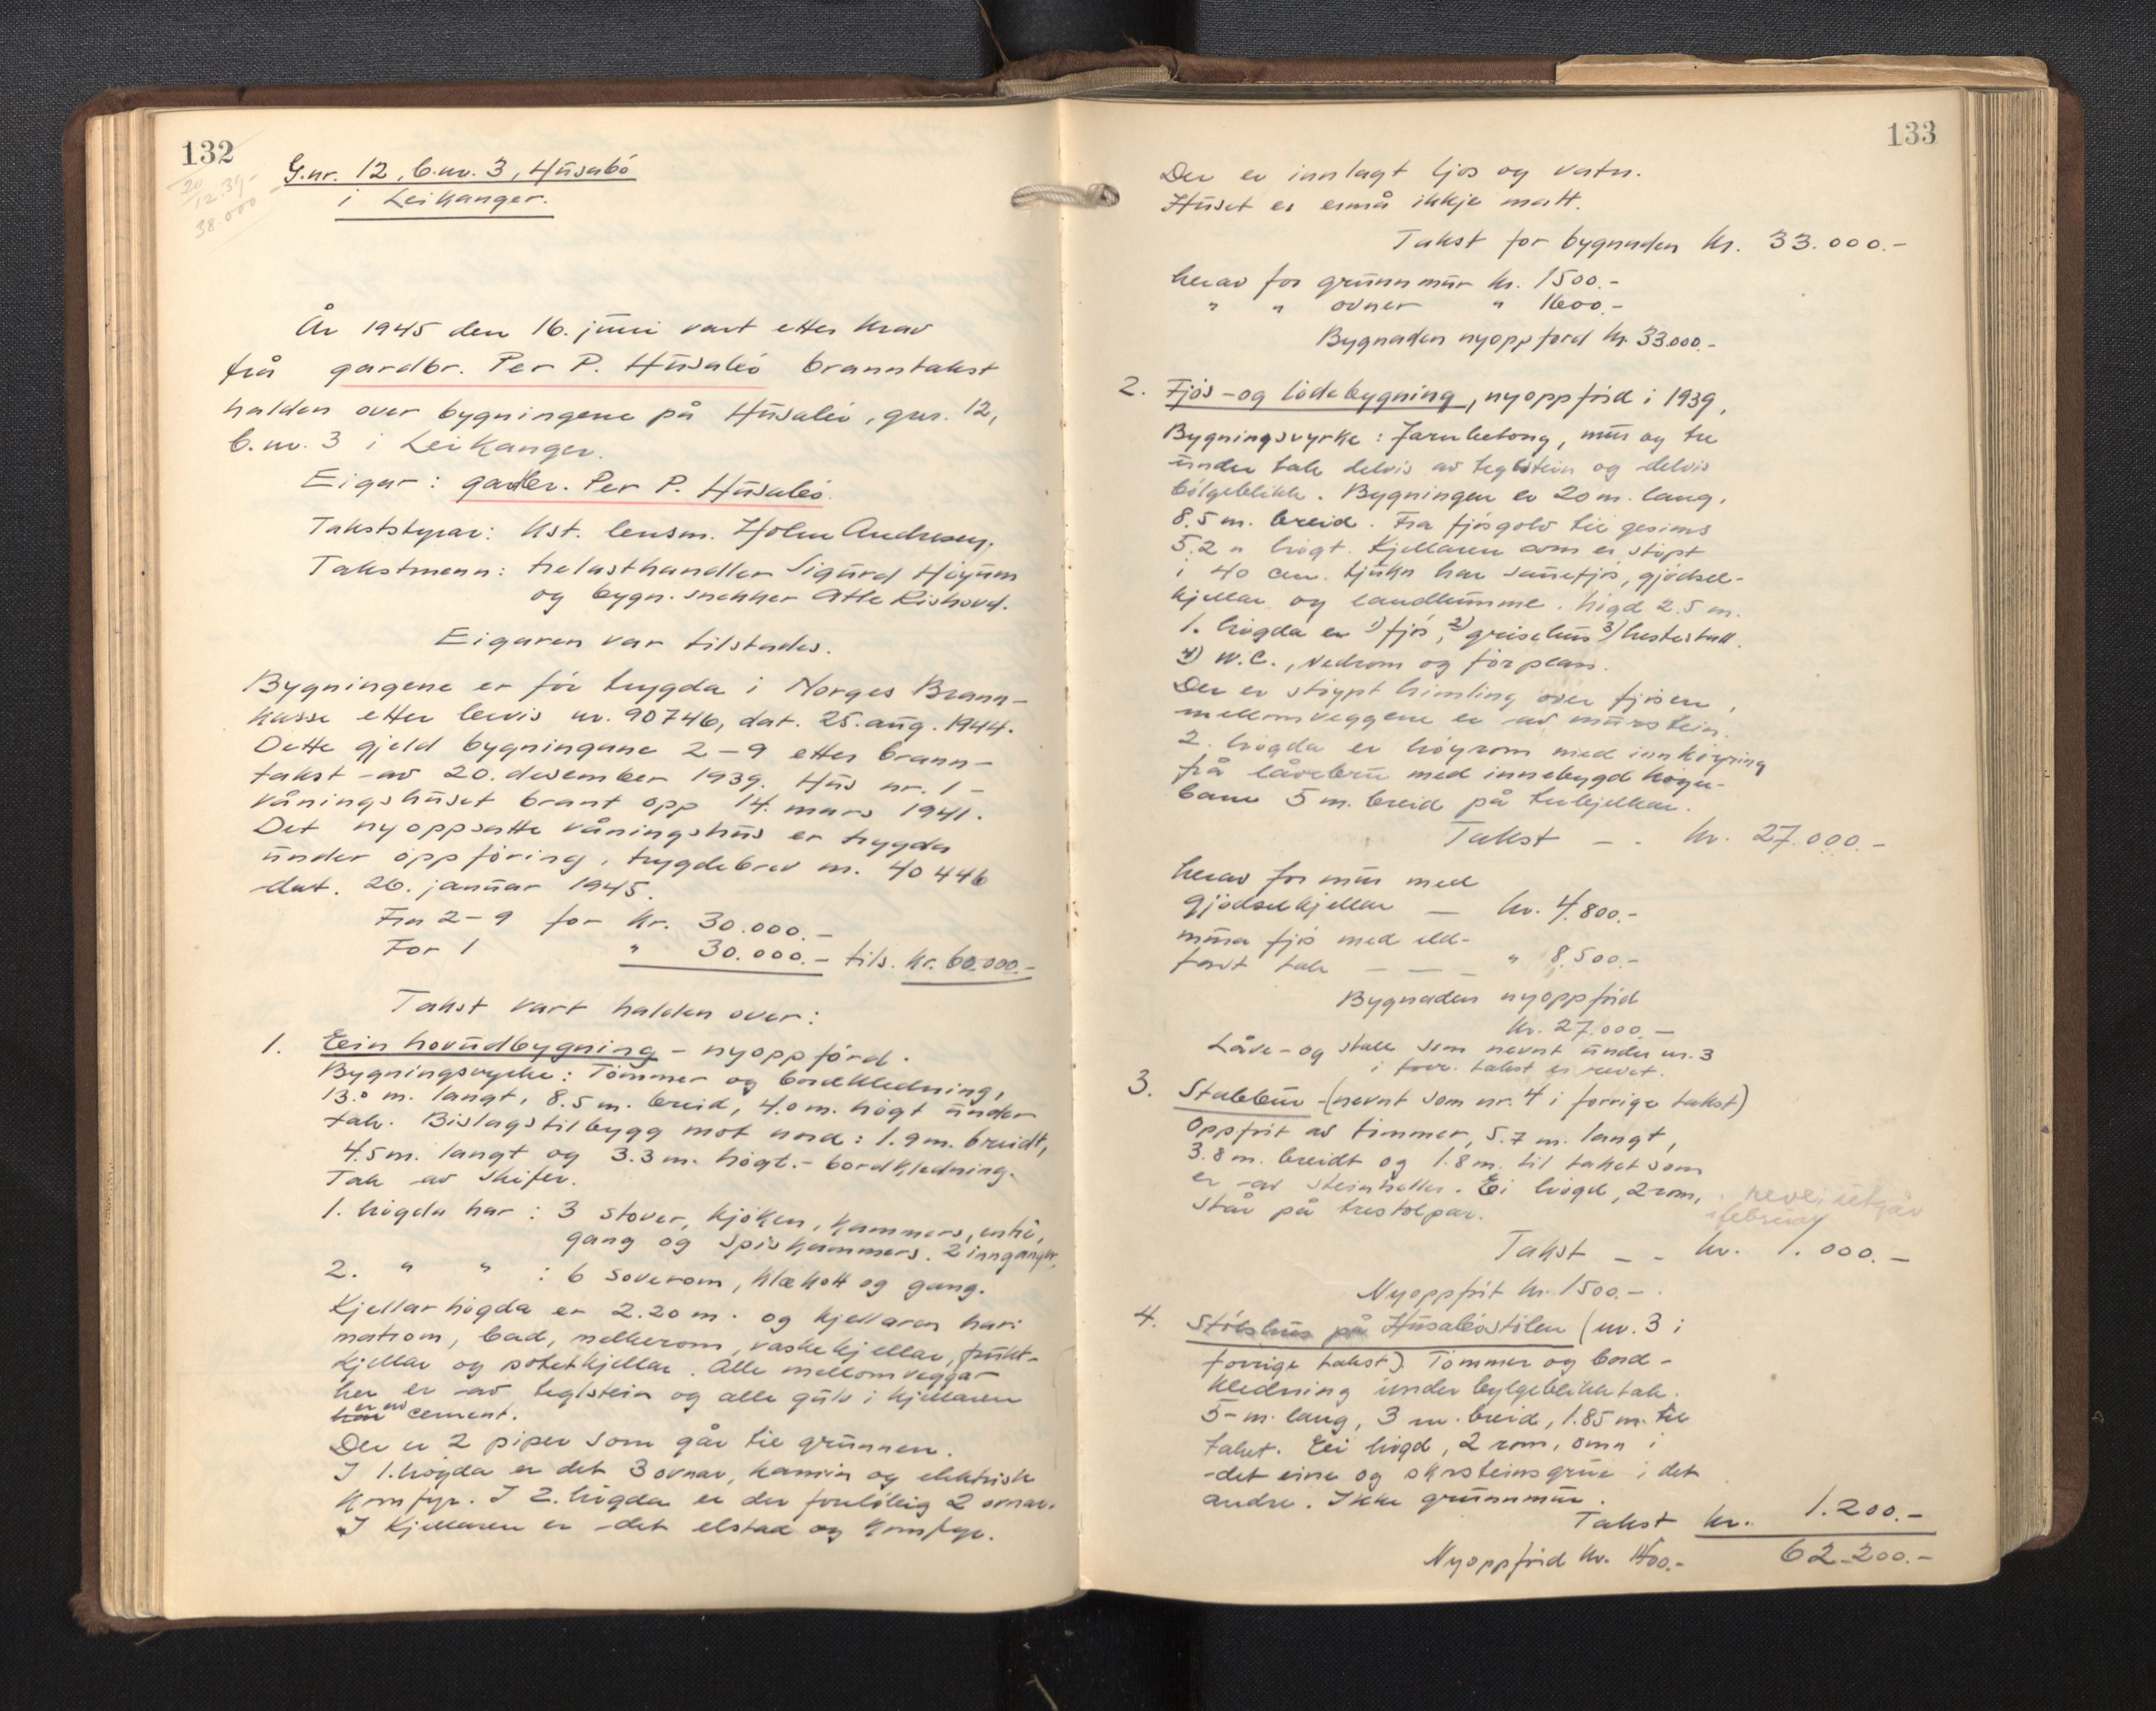 132
20/12.39-
38.000
G.nr. 12, b.nr. 3, Húsabö
i Leikanger.
År 1945 den 16. juni vart etter krav
frå gardbr. Per P. Húsabö branntakst
halden over bygningene på Húsabö, gnr. 12,
b.nr. 3 i Leikanger.
Eigar: gardbr. Per P. Húsabö.
Takststyrar: Kst. lensm. Holm Andresen.
Takstmenn: trelasthandler Sigurd Höyum
og bygn. snekker Atle Rishovd.
Eigaren var tilstades.
Bygningene er för trygda i Norges Brann-
kasse etter bevis nr. 90746, dat. 25. aug. 1944.
Dette gjeld bygningane 2-9 etter brann-
takst av 20. desember 1939. Hús nr. 1 -
våningshúset brant opp 14. mars 1941.
Det nyoppsatte våningshús er trygda
under oppföring, trygdebrev nr. 40446
dat. 26. januar 1945.
Fra 2-9 for kr. 30.000.-
For 1 " 30.000.- tils. kr. 60.000.-
Takst vart halden over:
1. Ein hovudbygning - nyoppförd.
Bygningsvyrke: Tömmer og bordkledning,
13.0 m. langt, 8.5 m. breid, 4.0 m. högt under
tak. Bislagstilbygg mot nord: 1.9 m. breidt,
4.5 m. langt og 3.3 m. högt.- bordkledning.
Tak av skifer.
1. högda har: 3 stover, kjöken, kammers, entré,
gang og spiskammers. 2 innganger.
2. " " : 6 soverom, klækott og gang.
Kjellarhögda er 2.20 m. og kjellaren har:
matrom, bad, melkerom, vaskekjellar, frukt-
kjellar og potetkjellar. Alle mellomveggar
her er av teglstein og alle gulv i kjellaren
har er av cement.
Der er 2 piper som går til grunnen.
I 1. högda er det 3 ovnar, kamin og elektrisk
komfyr. I 2. högda er der foreløbig 2 omnar.
I kjellaren er det elstad og komfyr.
133
Der er innlagt ljos og vatn.
Húset er ennå ikkje malt.
Takst for bygnaden kr. 33.000.-
herav for grunnmur kr. 1500.-
" " ovner " 1600.-
Bygnaden nyoppförd kr 33.000.-
2. Fjös- og lödebygning, nyoppförd i 1939,
Bygningsvyrke: Jarnbetong, mur og tre
under tak delvis av teglstein og delvis
bölgeblikk. Bygningen er 20 m. lang,
8.5 m. breid. Fra fjösgolv til gesims
5.2 m högt. Kjellaren som er stöpt
i 40 cm. tjukn har sauefjös, gjödsel-
kjellar og landkumme. Högd 2.5 m.
1. högda er 1) fjös, 2) grisehus 3) hestestall.
4) W.C., vedrom og förplass.
Der er stöypt himling over fjösen,
mellomveggene er av murstein.
2. högda er höyrom med innköyring
frå låvebru med innebygd köyre-
bane 5 m. breid på trebjelkar.
Takst - - kr. 27.000.-
herav for mur med
gjödselkjellar - kr. 4.800.-
mura fjös med eld-
fast tak - - - " 8.500.-
Bygnaden nyoppförd
kr. 27.000.-
Låve- og stall som nevnt under nr. 3
i forr. takst er revet.
3. Stabbur (nevnt som nr. 4 i forrige takst)
Oppfört av timmer, 5.7 m. langt,
3.8 m. breidt og 1.8 m. til taket som
er av steinheller. Ei högd, 2 rom,
står på trestolpar.
utgår
februar
Takst - - kr. 1.000.-
Nyoppfört kr. 1500.-
4. Stölshus på Húsaböstölen (nr. 3 i
forrige takst). Tömmer og bord-
kledning under bylgeblikktak.
5- m. lang, 3 m. breid, 1.85 m. til
taket. Ei högd, 2 rom, omn i
det eine og skorsteinsgrue i det
andre. Ikke grunnmur.
Takst kr. 1.200.-
Nyoppförd kr. 1400.- 62.200.-